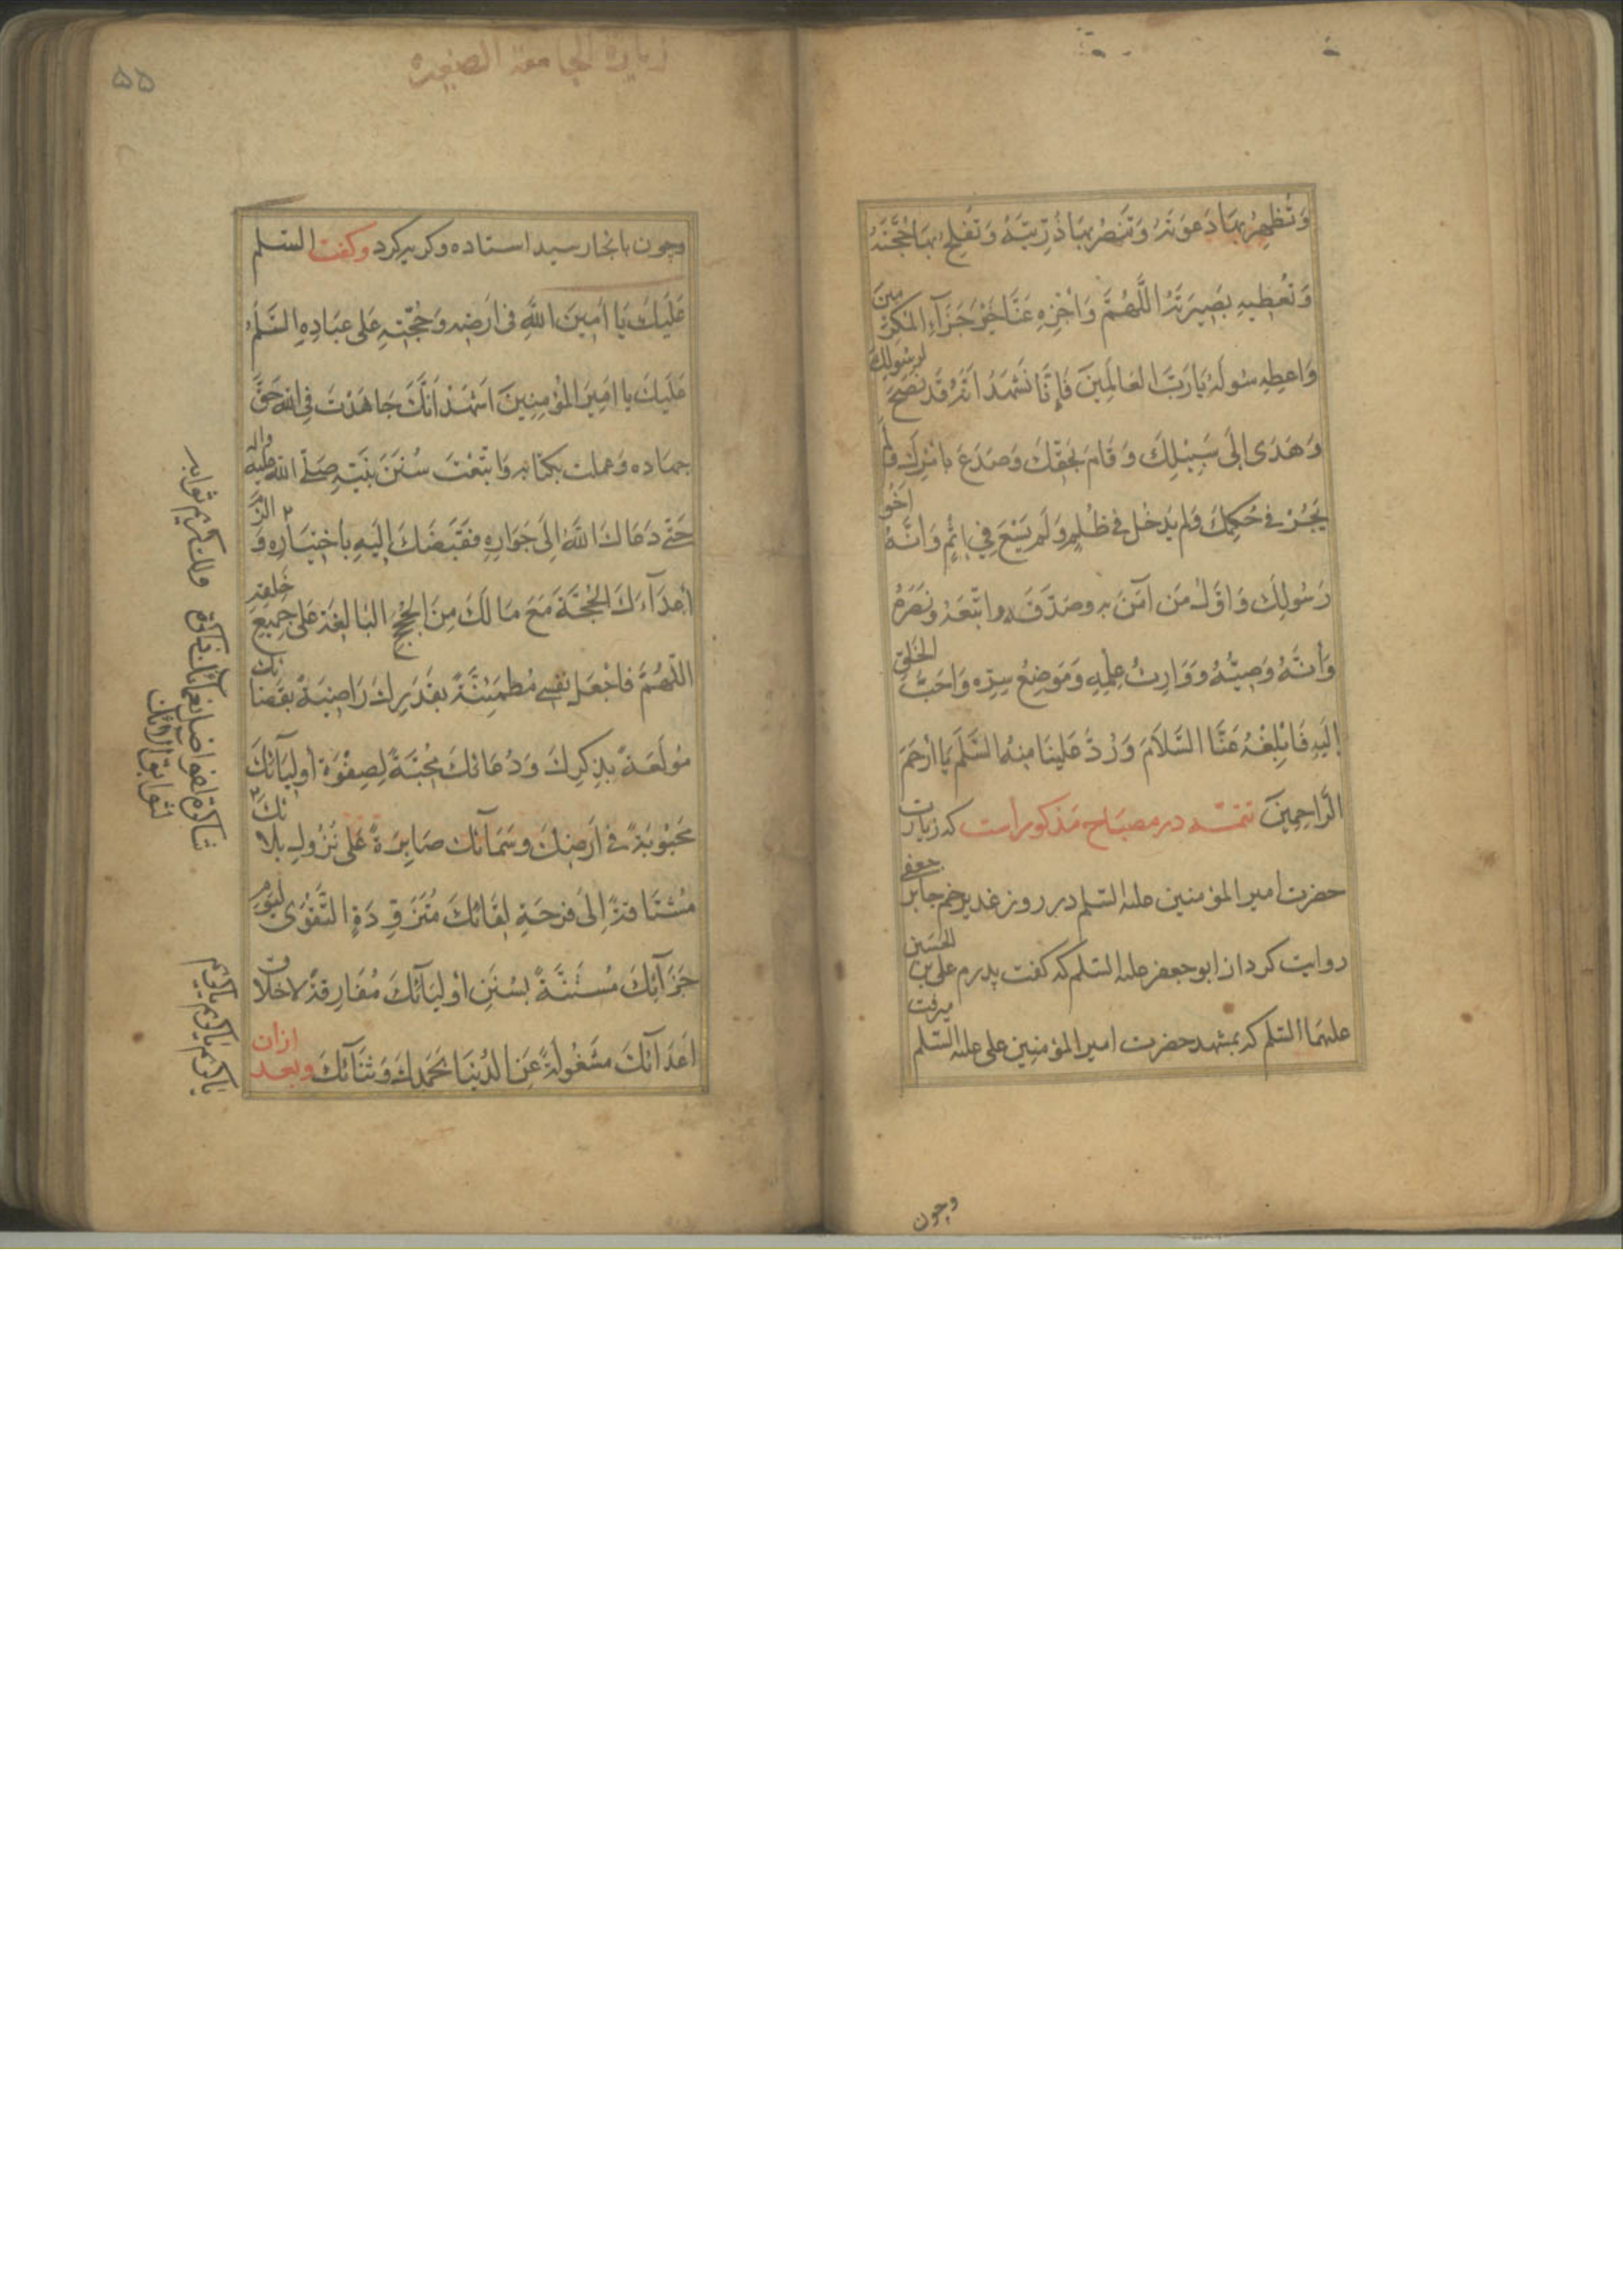 وَتُظهِرُ بِهَا دَعوَتَهُ وَتَنصُرُ بِهَا ذُرِّيَّتَهُ وَتُفلِجُ بِهَا حُجَّتَهُ
وَتُعطِيهِ بَصِيرَتَهُ اللَّهُمَّ وَاجْزِهِ عَنَّا خَيْرَ جَزَآءِ المُكرَمِينَ
وَاعطِهِ سُولَهُ يَارَبَّ العَالَمِينَ فَإِنَّا نَشهَدُ اَنَّهُ قَد نَصَحَ لِرَسُولِكَ
وَهَدَى اِلَى سَبِيْلِكَ وَقَامَ بِحَقِّكَ وَصَدَعَ بِاَمْرِكَ وَلَم
يَجُرْ فِي حُكمِكَ وَلَم يَدخُل فِي ظُلمٍ وَلَم يَسْعَ فِي اِثمٍ وَاَنَّهُ اَخُو
رَسُولِكَ وَاَوَّلُ مَن آمَنَ بِهِ وصَدَّقَهُ واتَّبَعَهُ ونَصَرَهُ
وَاَنَّهُ وَصِيُّهُ وَوَارِثُ عِلمِهِ وَمَوضِعُ سِرِّهِ وَاَحَبُّ الخَلقِ
اِلَيهِ فَابْلِغْهُ عَنَّا السَّلاَمَ وَرُدَّ عَلَينَا مِنهُ السَّلَمَ يَا اَرْحَمَ
الرَّاحِمِينَ تتمّه در مصباح مذكور است كه زيارت
حضرت امير المؤمنين عليه السّلم در روز غدير خم جابر جعفى
روايت كرد از ابو جعفر عليه السّلم كه كفت پدرم على بن الحسين
عليهما السّلم كه بمشهد حضرت امير المؤمنين على عليه السّلم ميرفت
وچون
زيارة الجامعة الصغيره
۵۵
وچون بانجا رسيد استاده وكريه كرد وكفت السّلم
عَلَيكَ يَا اَمِينَ اللهِ فِى اَرضِهِ وَحُجَّتِهِ عَلى عِبَادِهِ السَّلَمُ
عَلَيكَ يا اَمِيَر المُؤمِنِينَ اَشهَدُ اَنَّكَ جَاهَدْتَ فِي اللهِ حَقَّ
جِهَادِه وَعملت بكتابه وَاتَّبَعْتَ سُنَنَ نَبِيِّهِ صَلَّى اللهُ عليه واله
حَتّٰى دَعَاكَ اللهُ اِلَى جَوَارِهِ فَقَبَضَكَ اِلَيهِ بِاخْتِيَارِهِ وَ اَلزَمَ
اَعدَآءَكَ الحُجَّةَ مَعَ مَا لَكَ مِنَ الحُجَجِ البَالِغَةِ عَلى جَمِيعِ خَلقِهِ
اللّهُمَّ فَاجْعَل نَفسِي مُطمَئِنَّةً بِقَدَرِكَ رَاضِيَةً بِقَضَائِكَ
مُولَعَةً بِذِكرِكَ وَدُعَائِكَ مُحِبَّةً لِصَفْوَةِ اَولِيَائِكَ
مَحبُوْبَةً فِي اَرضِكَ وسَمَآئِكَ صَابِرَةً عَلى نُزُولِ بَلائِكَ
مُشتَاقةً اِلَى فَرحَةِ لِقَائِكَ مُتَزَوِّدَةً التَّقْوَى لِيَومِ
جَزَآئِكَ مُستَنَّةً بِسُنَنِ اَوْلِيَآئِكَ مُفَارِقَةً لاَخلاقِ
اَعدَآئِكَ مَشغُولَةً عَنِ الدُنيَا بِحَمدِكَ وَثَنَآئِكَ وبعد ازان